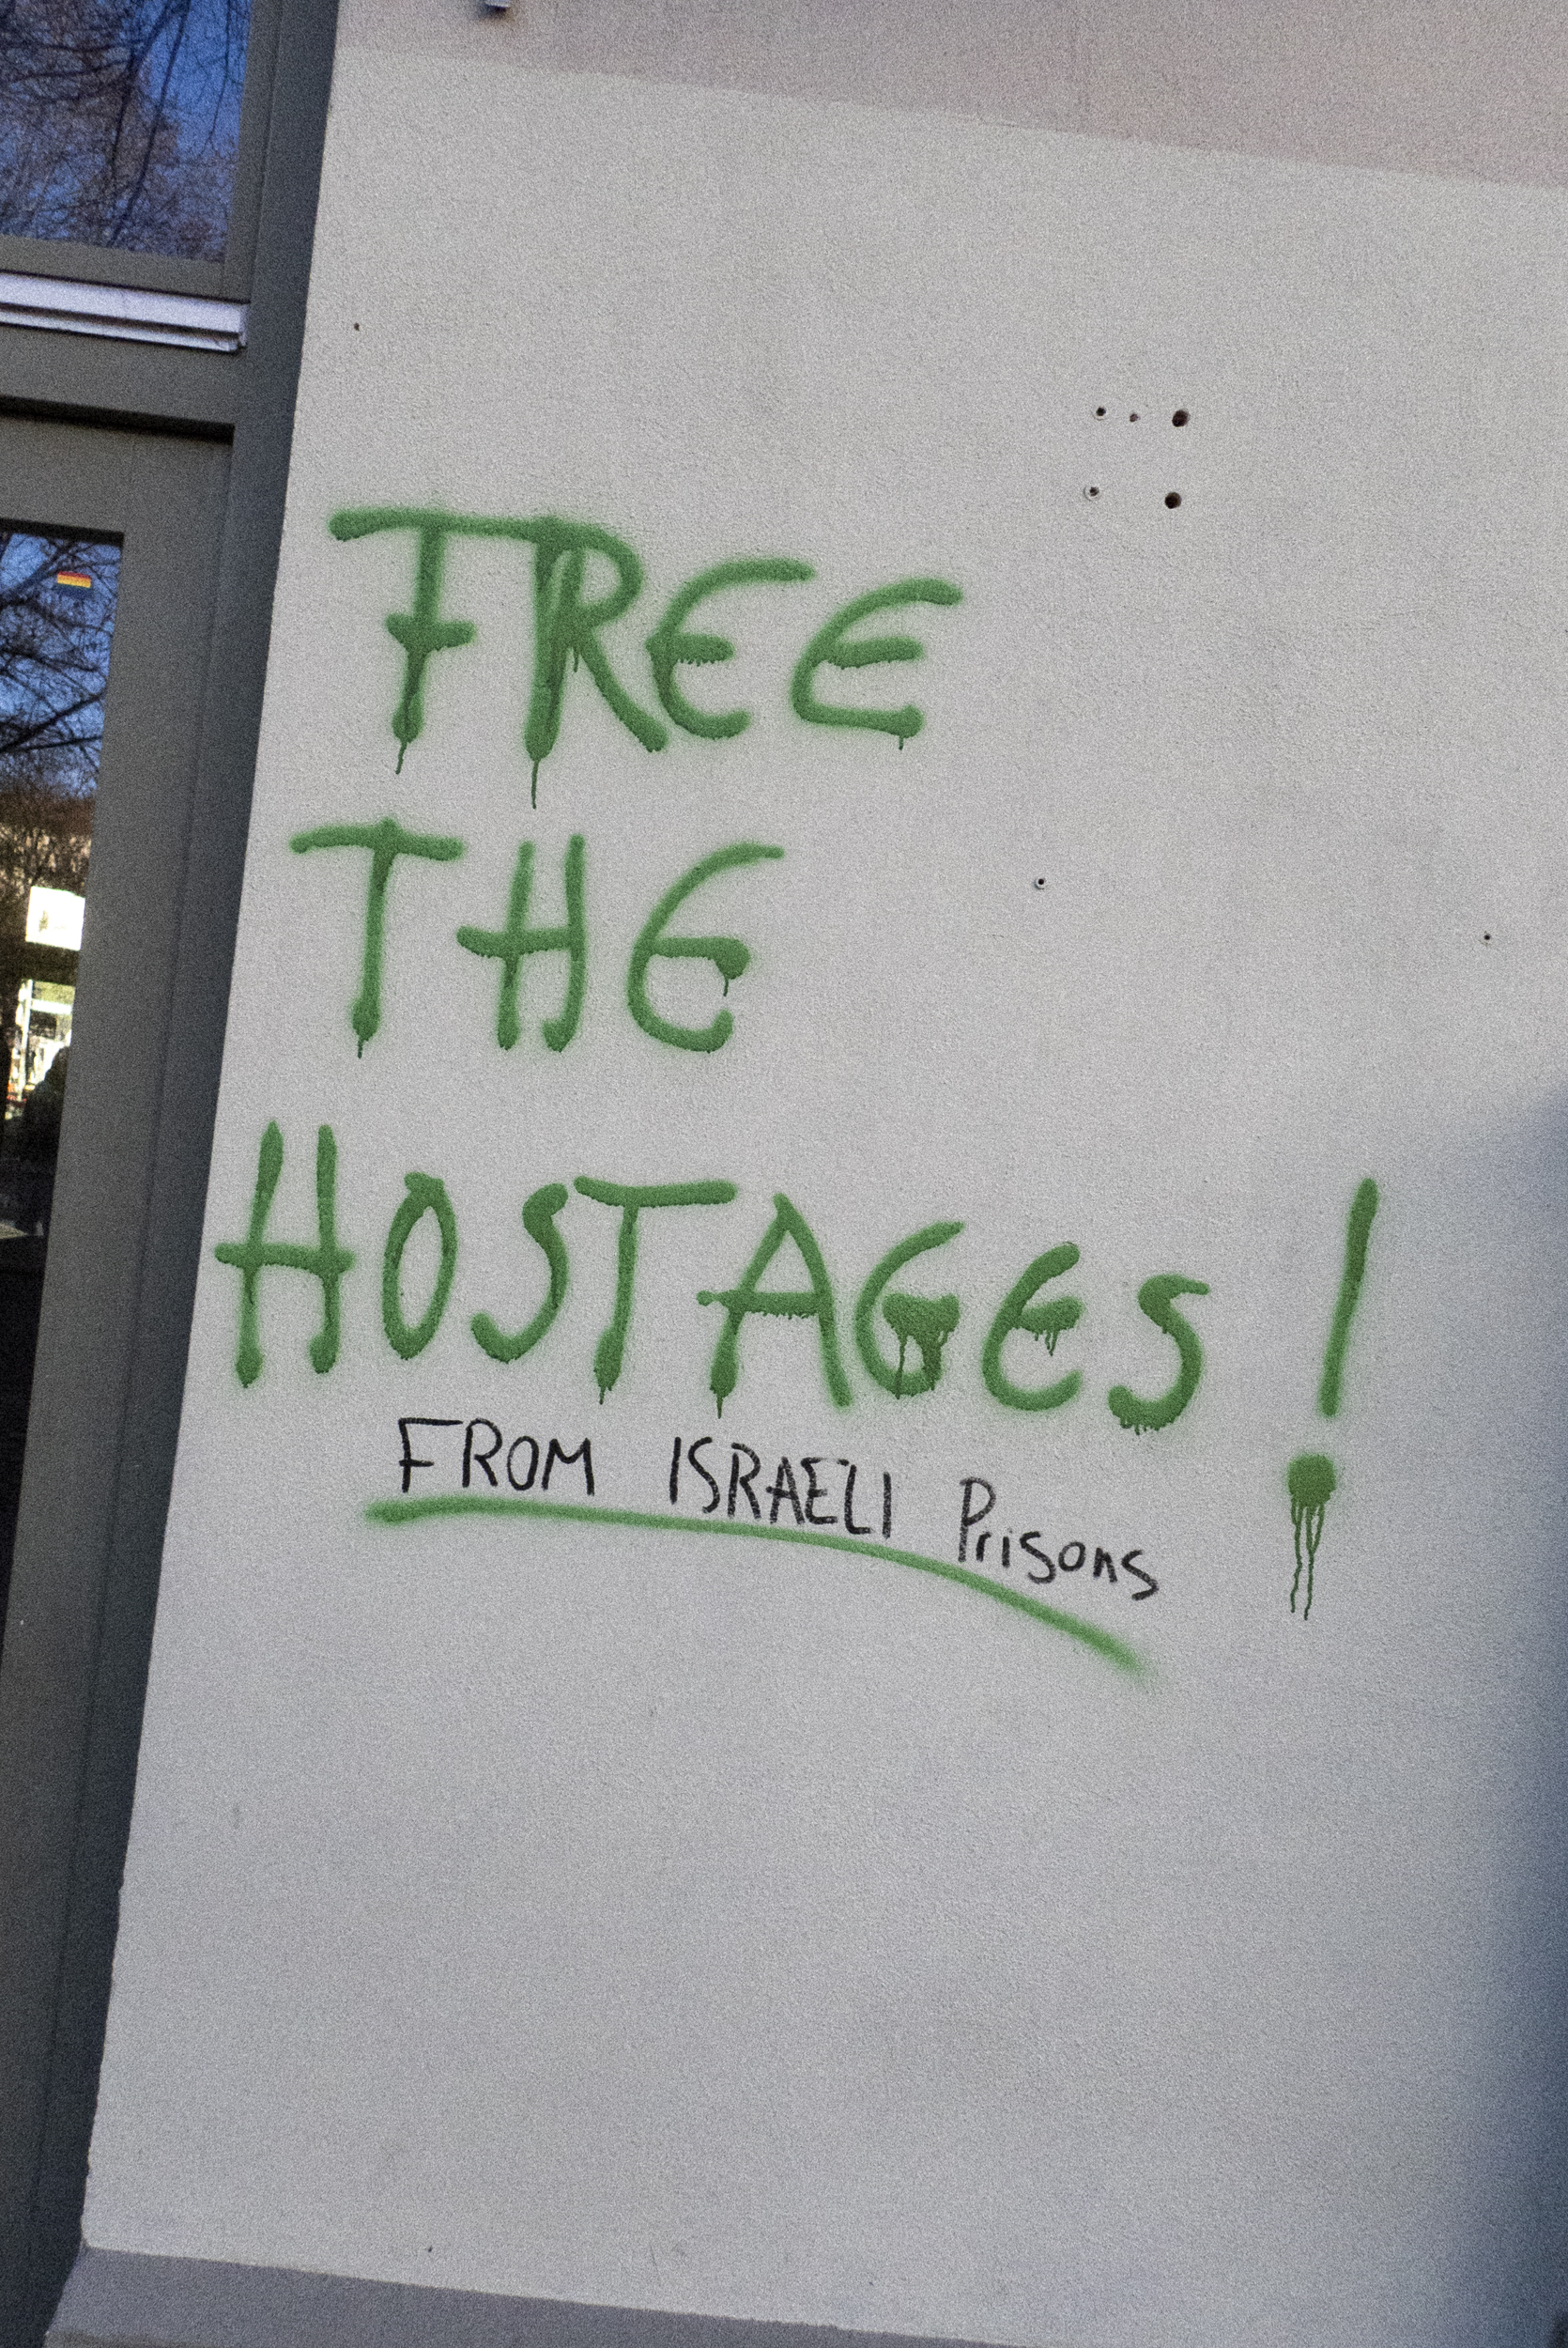 FREE
THE
HOSTAGES!
FROM ISRAELI Prisons